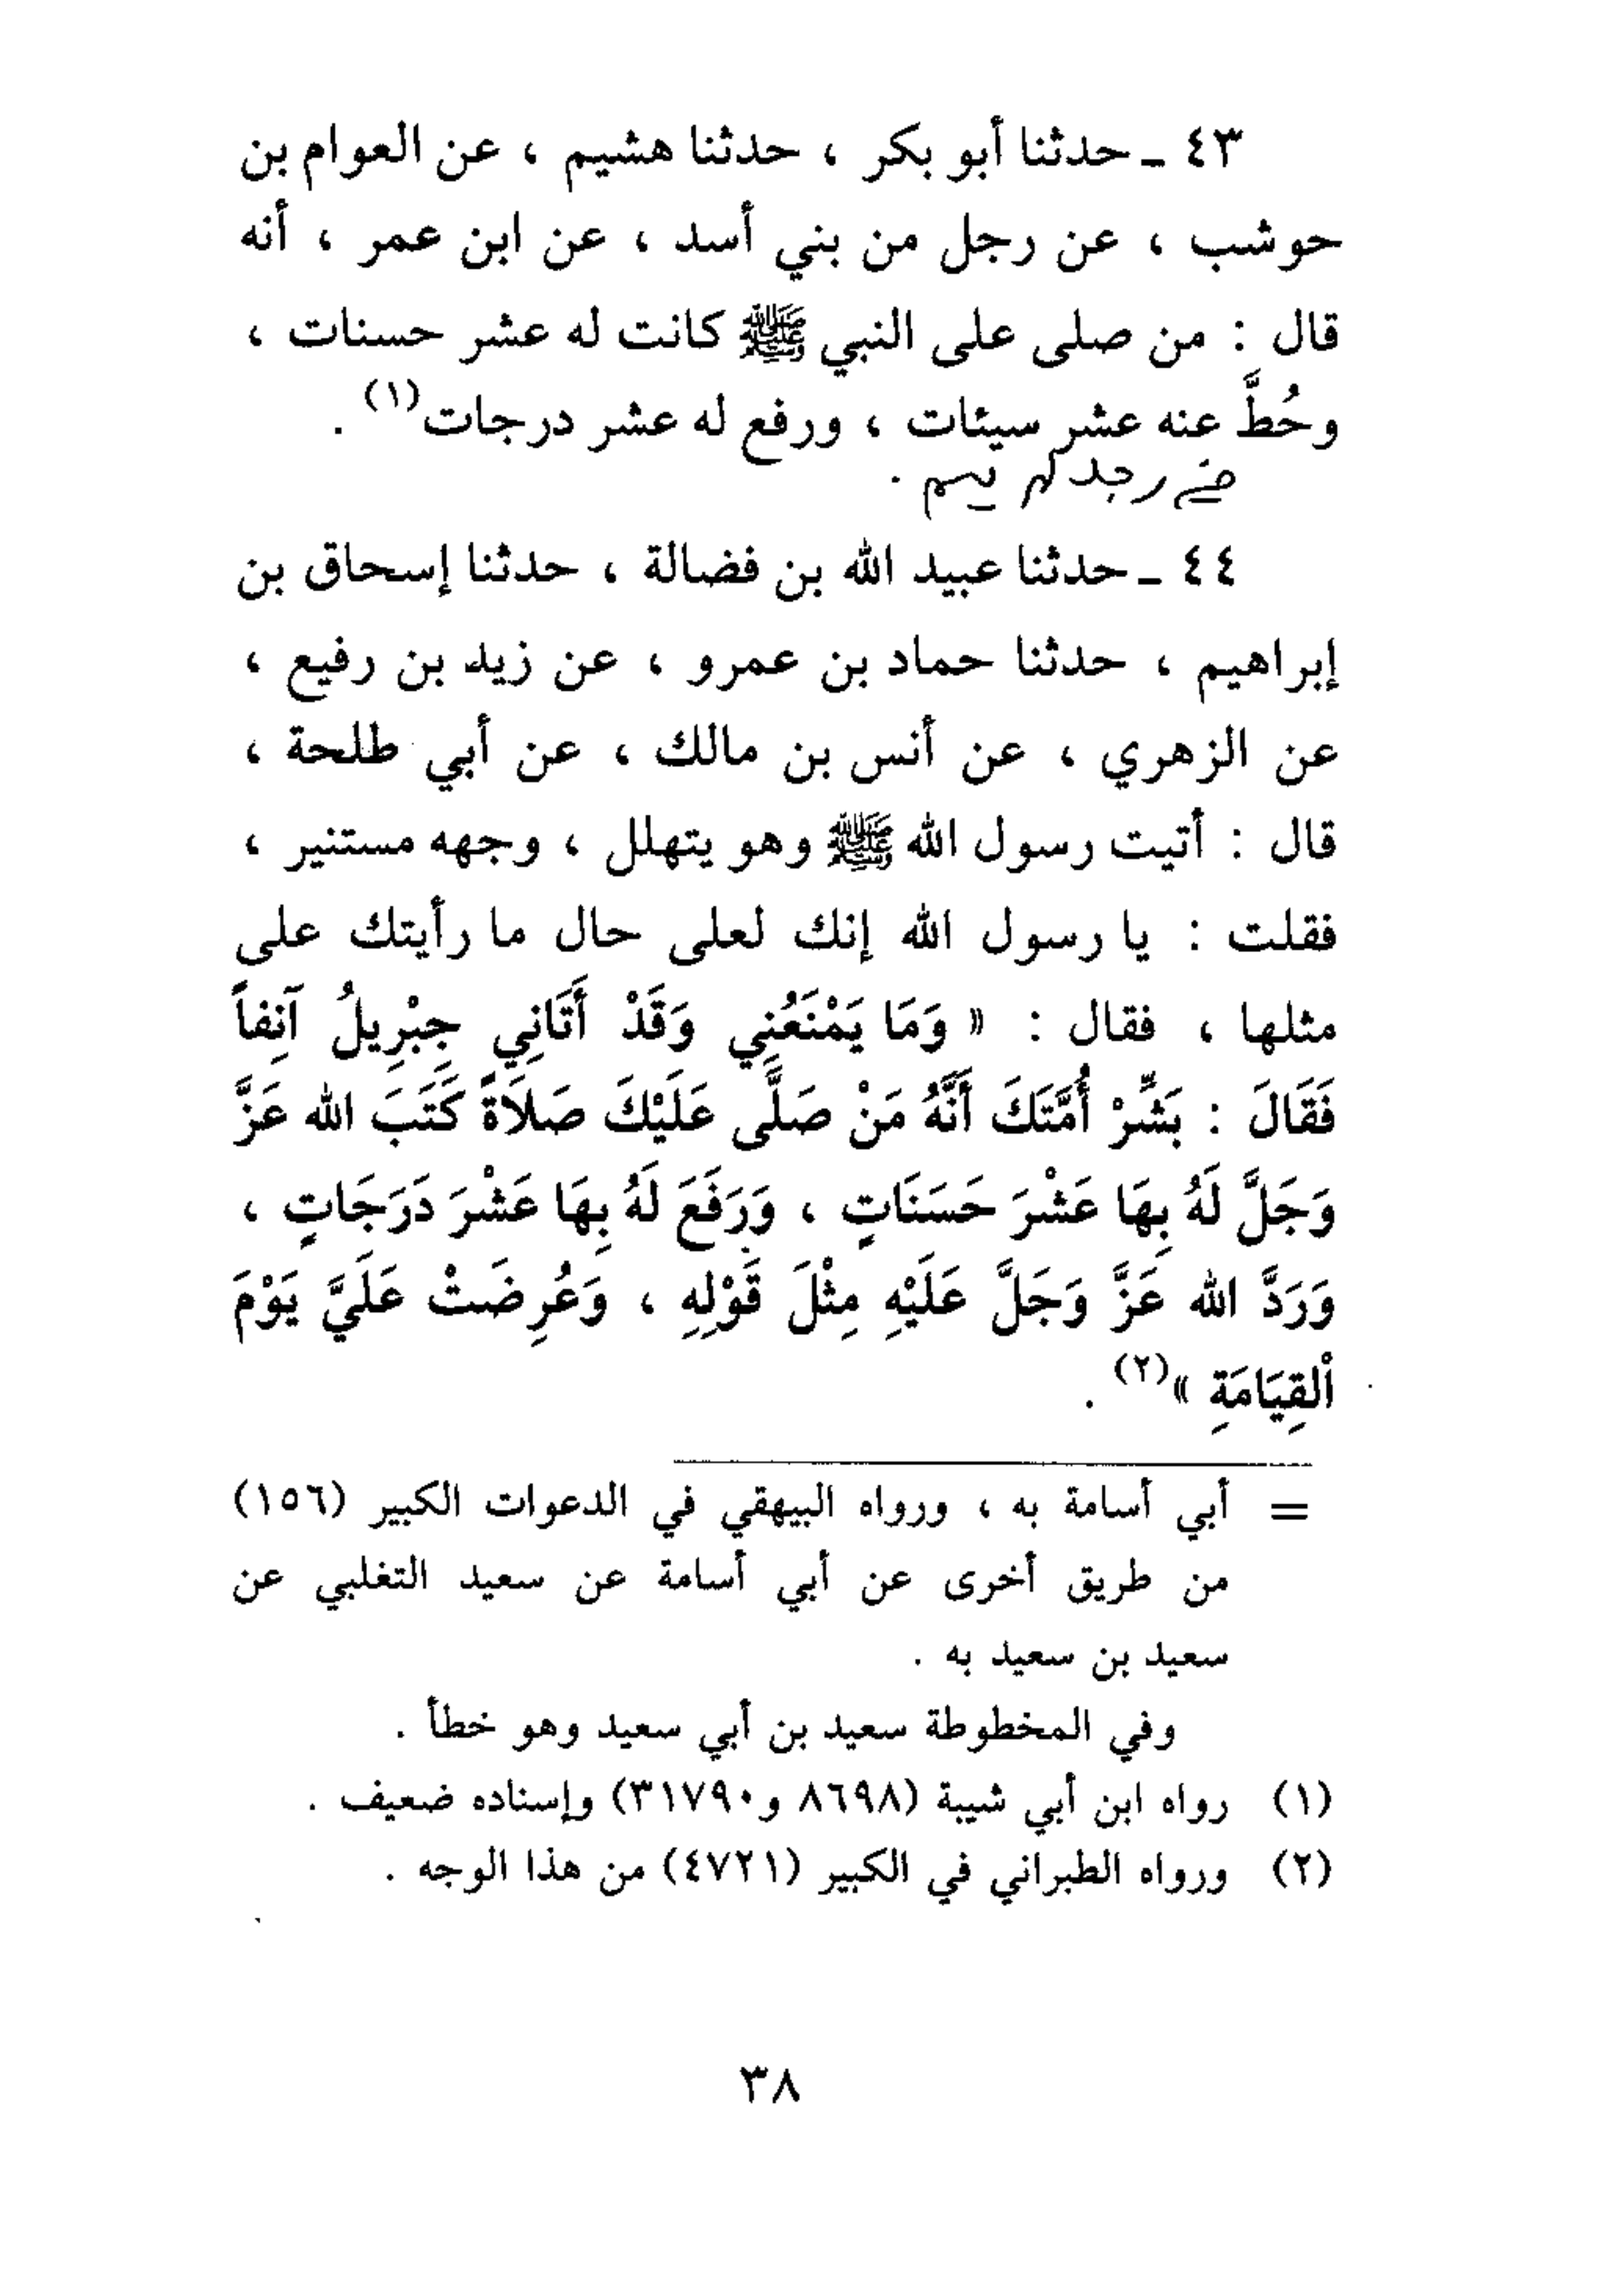 ٤٣ ـ حدثنا أبو بكر ، حدثنا هشيم ، عن العوام بن
حوشب ، عن رجل من بني أسد ، عن ابن عمر ، أنه
قال : من صلى على النبي ﷺ كانت له عشر حسنات ،
وحُطَّ عنه عشر سيئات ، ورفع له عشر درجات(١) .
رجل لم يسم .
٤٤ ـ حدثنا عبيد الله بن فضالة ، حدثنا إسحاق بن
إبراهيم ، حدثنا حماد بن عمرو ، عن زيد بن رفيع ،
عن الزهري ، عن أنس بن مالك ، عن أبي طلحة ،
قال : أتيت رسول الله ﷺ وهو يتهلل ، وجهه مستنير ،
فقلت : يا رسول الله إنك لعلى حال ما رأيتك على
مثلها ، فقال : « وَمَا يَمْنَعُنِي وَقَدْ أَتَانِي جِبْرِيلُ آنِفاً
فَقَالَ : بَشِّرْ أُمَّتَكَ أَنَّهُ مَنْ صَلَّى عَلَيْكَ صَلاَةً كَتَبَ الله عَزَّ
وَجَلَّ لَهُ بِهَا عَشْرَ حَسَنَاتٍ ، وَرَفَعَ لَهُ بِهَا عَشْرَ دَرَجَاتٍ ،
وَرَدَّ الله عَزَّ وَجَلَّ عَلَيْهِ مِثْلَ قَوْلِهِ ، وَعُرِضَتْ عَلَيَّ يَوْمَ
اْلقِيَامَةِ »(٢) .
= أبي أسامة به ، ورواه البيهقي في الدعوات الكبير (١٥٦)
من طريق أخرى عن أبي أسامة عن سعيد التغلبي عن
سعيد بن سعيد به .
وفي المخطوطة سعيد بن أبي سعيد وهو خطأ .
(١) رواه ابن أبي شيبة (٨٦٩٨ و٣١٧٩٠) وإسناده ضعيف .
(٢) ورواه الطبراني في الكبير (٤٧٢١) من هذا الوجه .
٣٨